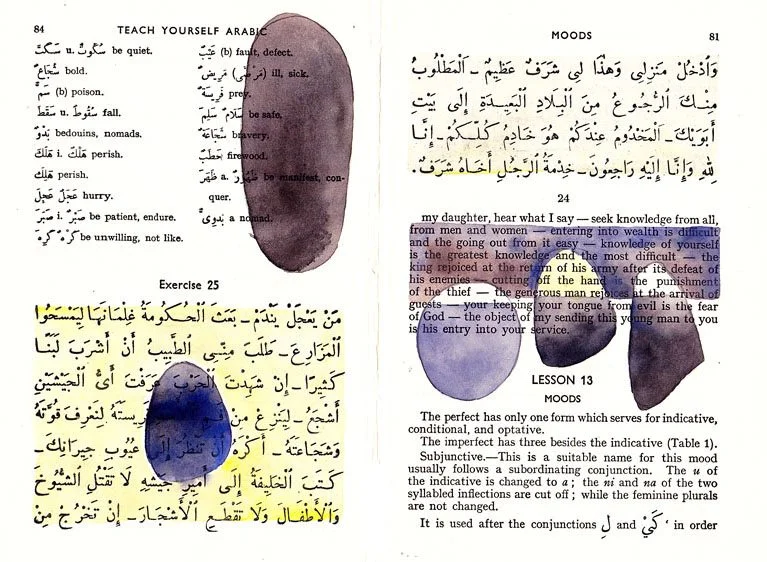 84 TEACH YOURSELF ARABIC
سَكَتَ u. سُكُوتٌ be quiet.
شُجَاعٌ bold.
سَمٌّ (b) poison.
سَقَطَ u. سُقُوطٌ fall.
بَدْوٌ bedouins, nomads.
هَلَكَ i. هُلْكٌ perish.
هَلِكَ perish.
عَجِلَ عَجَلٌ hurry.
صَبَرَ i. صَبْرٌ be patient, endure.
كَرِهَ كُرْهٌ be unwilling, not like.
عَيْبٌ (b) fault, defect.
مَرِيضٌ (مَرْضَى) ill, sick.
فَرِيسَةٌ prey.
سَلِمَ سَلَامٌ be safe.
شَجَاعَةٌ bravery.
حَطَبٌ firewood.
ظَهَرَ a. ظُهُورٌ be manifest, con-
quer.
بَدَوِىٌّ a nomad.
Exercise 25
مَنْ يَعْجَلْ يَنْدَمْ – بَعَثَ ٱلْحُكُومَةُ غِلْمَانَهَا لِيَمْسَحُوا
ٱلْمَزَارِعَ – طَلَبَ مِنِّى ٱلطَّبِيبُ أَنْ أَشْرَبَ لَبَنًا
كَثِيرًا – إِنْ شَهِدْتَ ٱلْحَرْبَ عَرَفْتَ أَىُّ ٱلْجَيْشَيْنِ
أَشْجَعُ – لِيَنْزِعْ مِنْ فَرِيسَتَهُ لِنَعْرِفَ قُوَّتَهُ
وَشَجَاعَتَهُ – أَكْرَهُ أَنْ تَنْظُرَ إِلَى عُيُوبِ جِيرَانِكَ –
كَتَبَ ٱلْخَلِيفَةُ إِلَى أَمِيرِ جَيْشِهِ لَا تَقْتُلِ ٱلشُّيُوخَ
وَٱلْأَطْفَالَ وَلَا تَقْطَعِ ٱلْأَشْجَارَ – إِنْ تَخْرُجْ مِنْ
MOODS 81
وَٱدْخُلْ مَنْزِلِى وَهٰذَا لِى شَرَفٌ عَظِيمٌ – ٱلْمَطْلُوبُ
مِنْكَ ٱلرُّجُوعُ مِنَ ٱلْبِلَادِ ٱلْبَعِيدَةِ إِلَى بَيْتِ
أَبَوَيْكَ – ٱلْمَخْدُومُ عِنْدَكُمْ هُوَ خَادِمُ كُلِّكُمْ – إِنَّا
لِلّٰهِ وَإِنَّا إِلَيْهِ رَاجِعُونَ – خِدْمَةُ ٱلرَّجُلِ أَخَاهُ شَرَفٌ.
24
my daughter, hear what I say — seek knowledge from all,
from men and women — entering into wealth is difficult
and the going out from it easy — knowledge of yourself
is the greatest knowledge and the most difficult — the
king rejoiced at the return of his army after its defeat of
his enemies — cutting off the hand is the punishment
of the thief — the generous man rejoices at the arrival of
guests — your keeping your tongue from evil is the fear
of God — the object of my sending this young man to you
is his entry into your service.
LESSON 13
MOODS
The perfect has only one form which serves for indicative,
conditional, and optative.
The imperfect has three besides the indicative (Table 1).
Subjunctive.—This is a suitable name for this mood
usually follows a subordinating conjunction. The u of
the indicative is changed to a; the ni and na of the two
syllabled inflections are cut off; while the feminine plurals
are not changed.
It is used after the conjunctions لِ and كَىْ ' in order